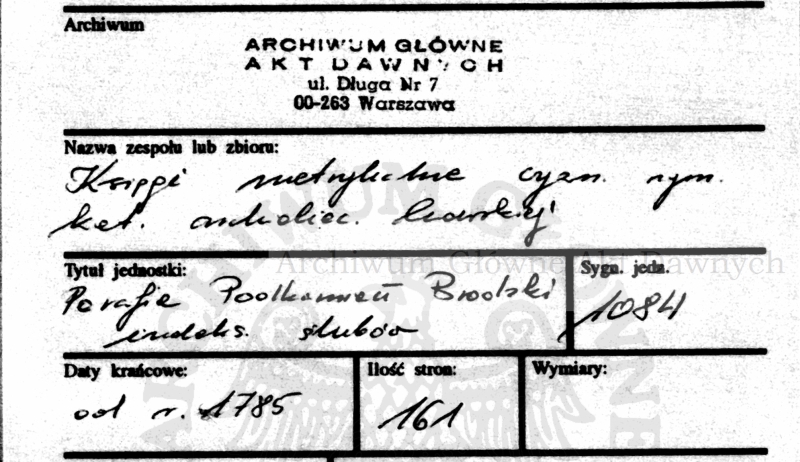 Archiwum
ARCHIWUM GŁÓWNE
AKT DAWNYCH
ul. Długa Nr 7
00-263 Warszawa
Nazwa zespołu lub zbioru:
Księgi metrykalne wyzn. rzym.
kat. archidiec. lwowskiej
Archiwum Główne Akt Dawnych
Tytuł jednostki:
Sygn. jedn.
Parafie Podkamień Brodzki
1084
indeks. ślubów
Daty krańcowe:
Ilość stron:
Wymiary:
od r. 1785
161